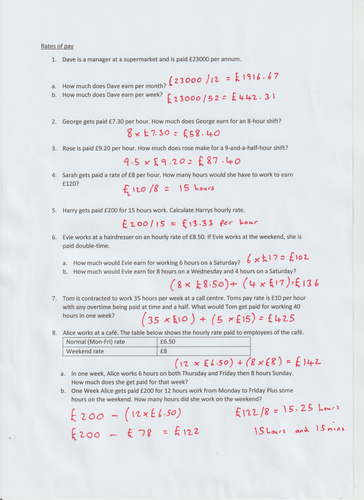 Rates of pay
1. Dave is a manager at a supermarket and is paid £23000 per annum.
a. How much does Dave earn per month? £23000/12 = £1916.67
b. How much does Dave earn per week? £23000/52 = £442.31
2. George gets paid £7.30 per hour. How much does George earn for an 8-hour shift?
8 x £7.30 = £58.40
3. Rose is paid £9.20 per hour. How much does rose make for a 9-and-a-half-hour shift?
9.5 x £9.20 = £87.40
4. Sarah gets paid a rate of £8 per hour. How many hours would she have to work to earn
£120?
£120/8 = 15 hours
5. Harry gets paid £200 for 15 hours work. Calculate Harrys hourly rate.
£200/15 = £13.33 per hour
6. Evie works at a hairdresser on an hourly rate of £8.50. If Evie works at the weekend, she is
paid double-time.
a. How much would Evie earn for working 6 hours on a Saturday? 6 x £17 = £102
b. How much would Evie earn for 8 hours on a Wednesday and 4 hours on a Saturday?
(8 x £8.50) + (4 x £17) = £136
7. Tom is contracted to work 35 hours per week at a call centre. Toms pay rate is £10 per hour
with any overtime being paid at time and a half. What would Tom get paid for working 40
hours in one week? (35 x £10) + (5 x £15) = £425
8. Alice works at a café. The table below shows the hourly rate paid to employees of the café.
Normal (Mon-Fri) rate £6.50
Weekend rate £8
(12 x £6.50) + (8 x £8) = £142
a. In one week, Alice works 6 hours on both Thursday and Friday then 8 hours Sunday.
How much does she get paid for that week?
b. One Week Alice gets paid £200 for 12 hours work from Monday to Friday Plus some
hours on the weekend. How many hours did she work on the weekend?
£200 - (12 x £6.50) £122/8 = 15.25 hours
£200 - £78 = £122 15 hours and 15 mins